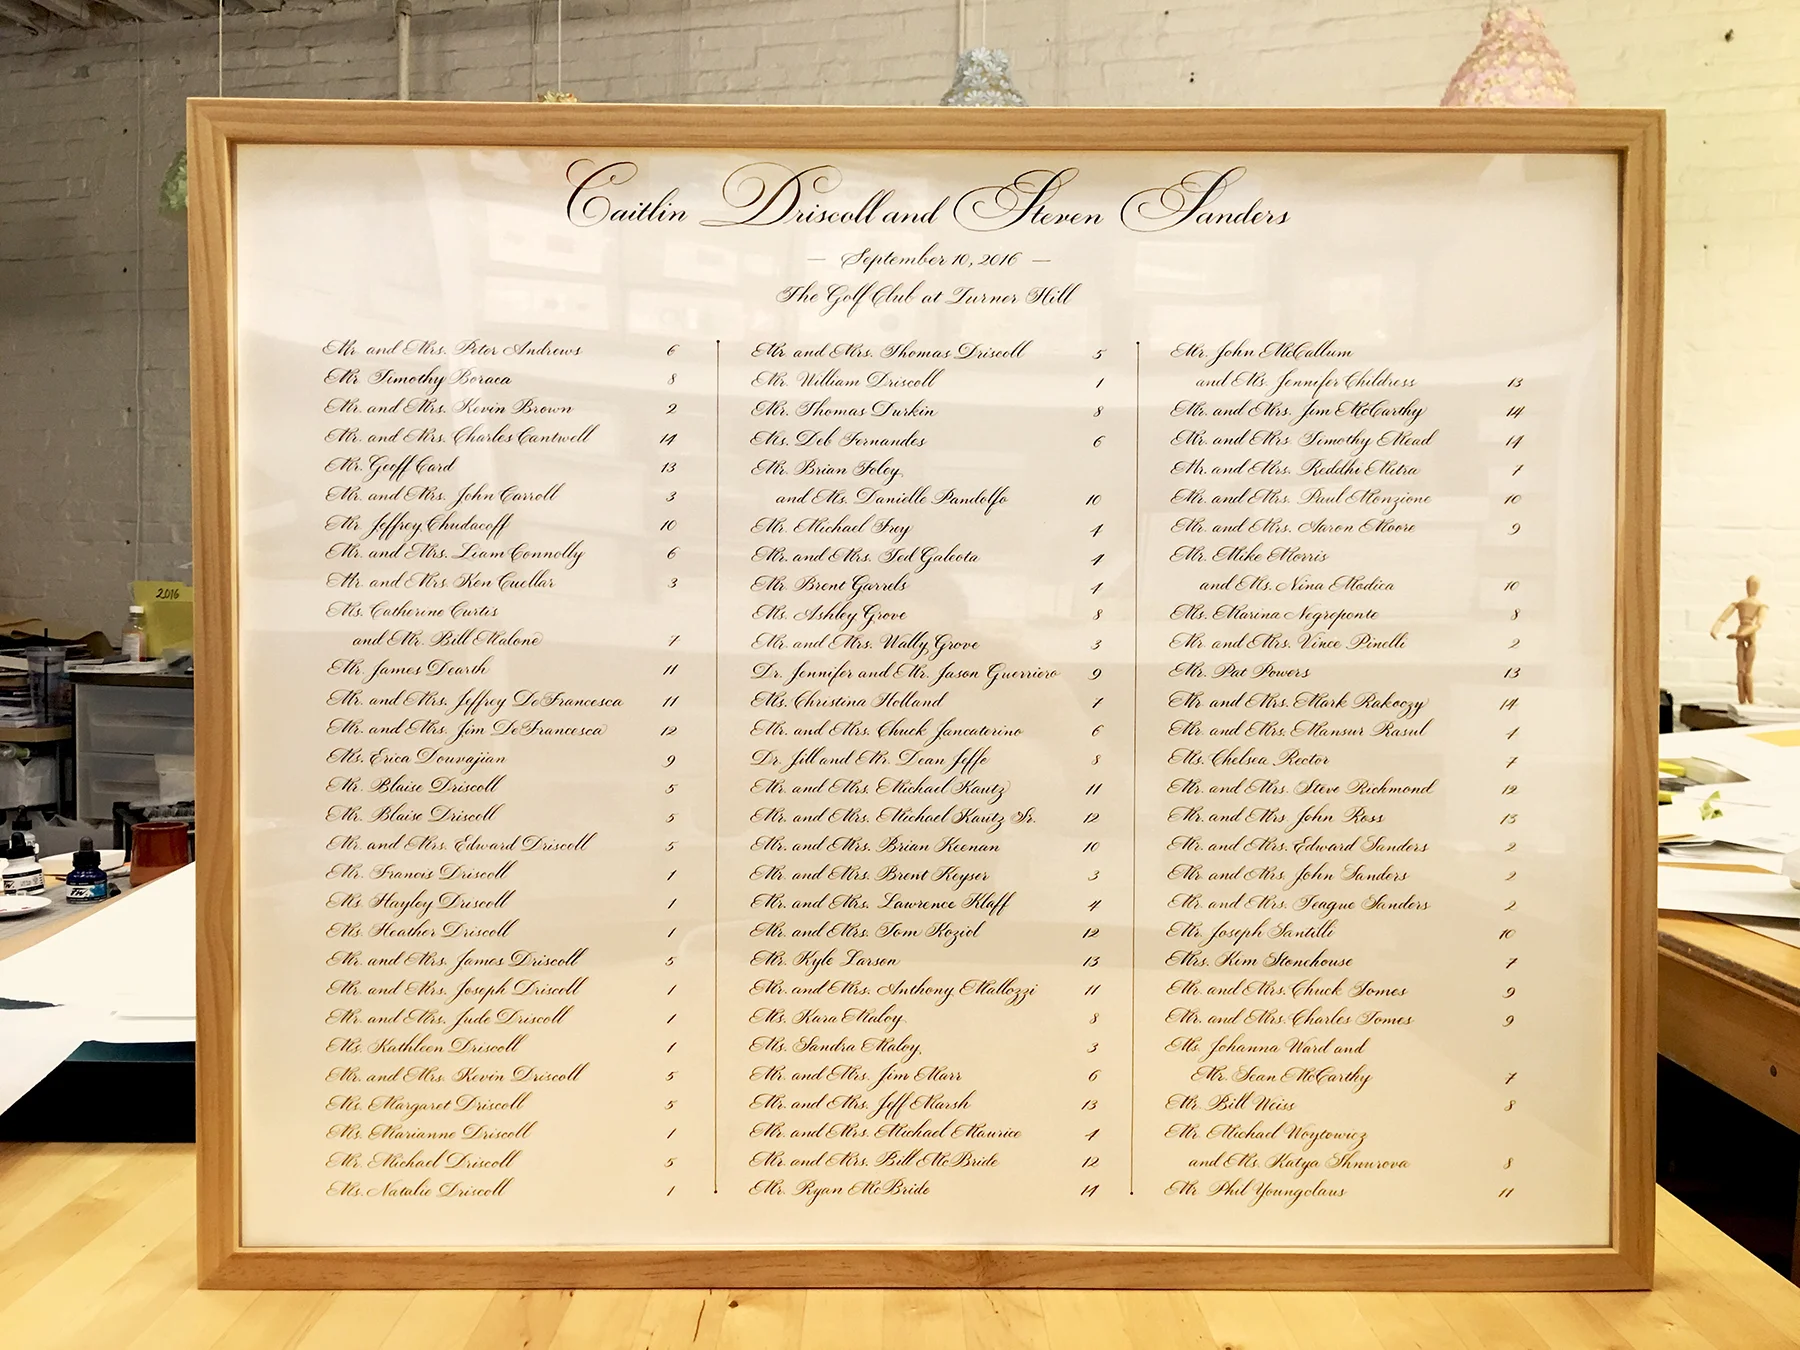 Caitlin Driscoll and Steven Sanders
— September 10, 2016 —
The Golf Club at Turner Hill
Mr. and Mrs. Peter Andrews 6
Mr. Timothy Boraca 8
Mr. and Mrs. Kevin Brown 2
Mr. and Mrs. Charles Cantwell 14
Mr. Geoff Card 13
Mr. and Mrs. John Carroll 3
Mr. Jeffrey Chudacoff 10
Mr. and Mrs. Liam Connolly 6
Mr. and Mrs. Ken Cuellar 3
Ms. Catherine Curtis
and Mr. Bill Malone 7
Mr. James Dearth 11
Mr. and Mrs. Jeffrey DeFrancesca 11
Mr. and Mrs. Jim DeFrancesca 12
Ms. Erica Douvajian 9
Mr. Blaise Driscoll 5
Mr. Blaise Driscoll 5
Mr. and Mrs. Edward Driscoll 5
Mr. Francis Driscoll 1
Ms. Hayley Driscoll 1
Ms. Heather Driscoll 1
Mr. and Mrs. James Driscoll 5
Mr. and Mrs. Joseph Driscoll 1
Mr. and Mrs. Jude Driscoll 1
Ms. Kathleen Driscoll 1
Mr. and Mrs. Kevin Driscoll 5
Ms. Margaret Driscoll 5
Ms. Marianne Driscoll 1
Mr. Michael Driscoll 5
Ms. Natalie Driscoll 1
Mr. and Mrs. Thomas Driscoll 5
Mr. William Driscoll 1
Mr. Thomas Durkin 8
Ms. Deb Fernandes 6
Mr. Brian Foley
and Ms. Danielle Pandolfo 10
Mr. Michael Frey 4
Mr. and Mrs. Ted Galeota 4
Mr. Brent Garrels 4
Ms. Ashley Grove 8
Mr. and Mrs. Wally Grove 3
Dr. Jennifer and Mr. Jason Guerriero 9
Ms. Christina Holland 7
Mr. and Mrs. Chuck Jancaterino 6
Dr. Jill and Mr. Dean Jeffe 8
Mr. and Mrs. Michael Kautz 11
Mr. and Mrs. Michael Kautz Sr. 12
Mr. and Mrs. Brian Keenan 10
Mr. and Mrs. Brent Keyser 3
Mr. and Mrs. Lawrence Klaff 4
Mr. and Mrs. Tom Koziol 12
Mr. Kyle Larson 13
Mr. and Mrs. Anthony Mallozzi 11
Ms. Kara Maloy 8
Ms. Sandra Maloy 3
Mr. and Mrs. Jim Marr 6
Mr. and Mrs. Jeff Marsh 13
Mr. and Mrs. Michael Maurice 4
Mr. and Mrs. Bill McBride 12
Mr. Ryan McBride 14
Mr. John McCallum
and Ms. Jennifer Childress 13
Mr. and Mrs. Jim McCarthy 14
Mr. and Mrs. Timothy Mead 14
Mr. and Mrs. Reddhi Mitra 7
Mr. and Mrs. Paul Monzione 10
Mr. and Mrs. Aaron Moore 9
Mr. Mike Morris
and Ms. Nina Modica 10
Ms. Marina Negroponte 8
Mr. and Mrs. Vince Pinelli 2
Mr. Pat Powers 13
Mr. and Mrs. Mark Rakoczy 14
Mr. and Mrs. Mansur Rasul 4
Ms. Chelsea Rector 7
Mr. and Mrs. Steve Richmond 12
Mr. and Mrs. John Ross 13
Mr. and Mrs. Edward Sanders 2
Mr. and Mrs. John Sanders 2
Mr. and Mrs. Teague Sanders 2
Mr. Joseph Santilli 10
Mrs. Kim Stonehouse 7
Mr. and Mrs. Chuck Tomes 9
Mr. and Mrs. Charles Tomes 9
Ms. Johanna Ward and
Mr. Sean McCarthy 7
Mr. Bill Weiss 8
Mr. Michael Woytowicz
and Ms. Katya Shnurova 8
Mr. Phil Youngclaus 11
2016